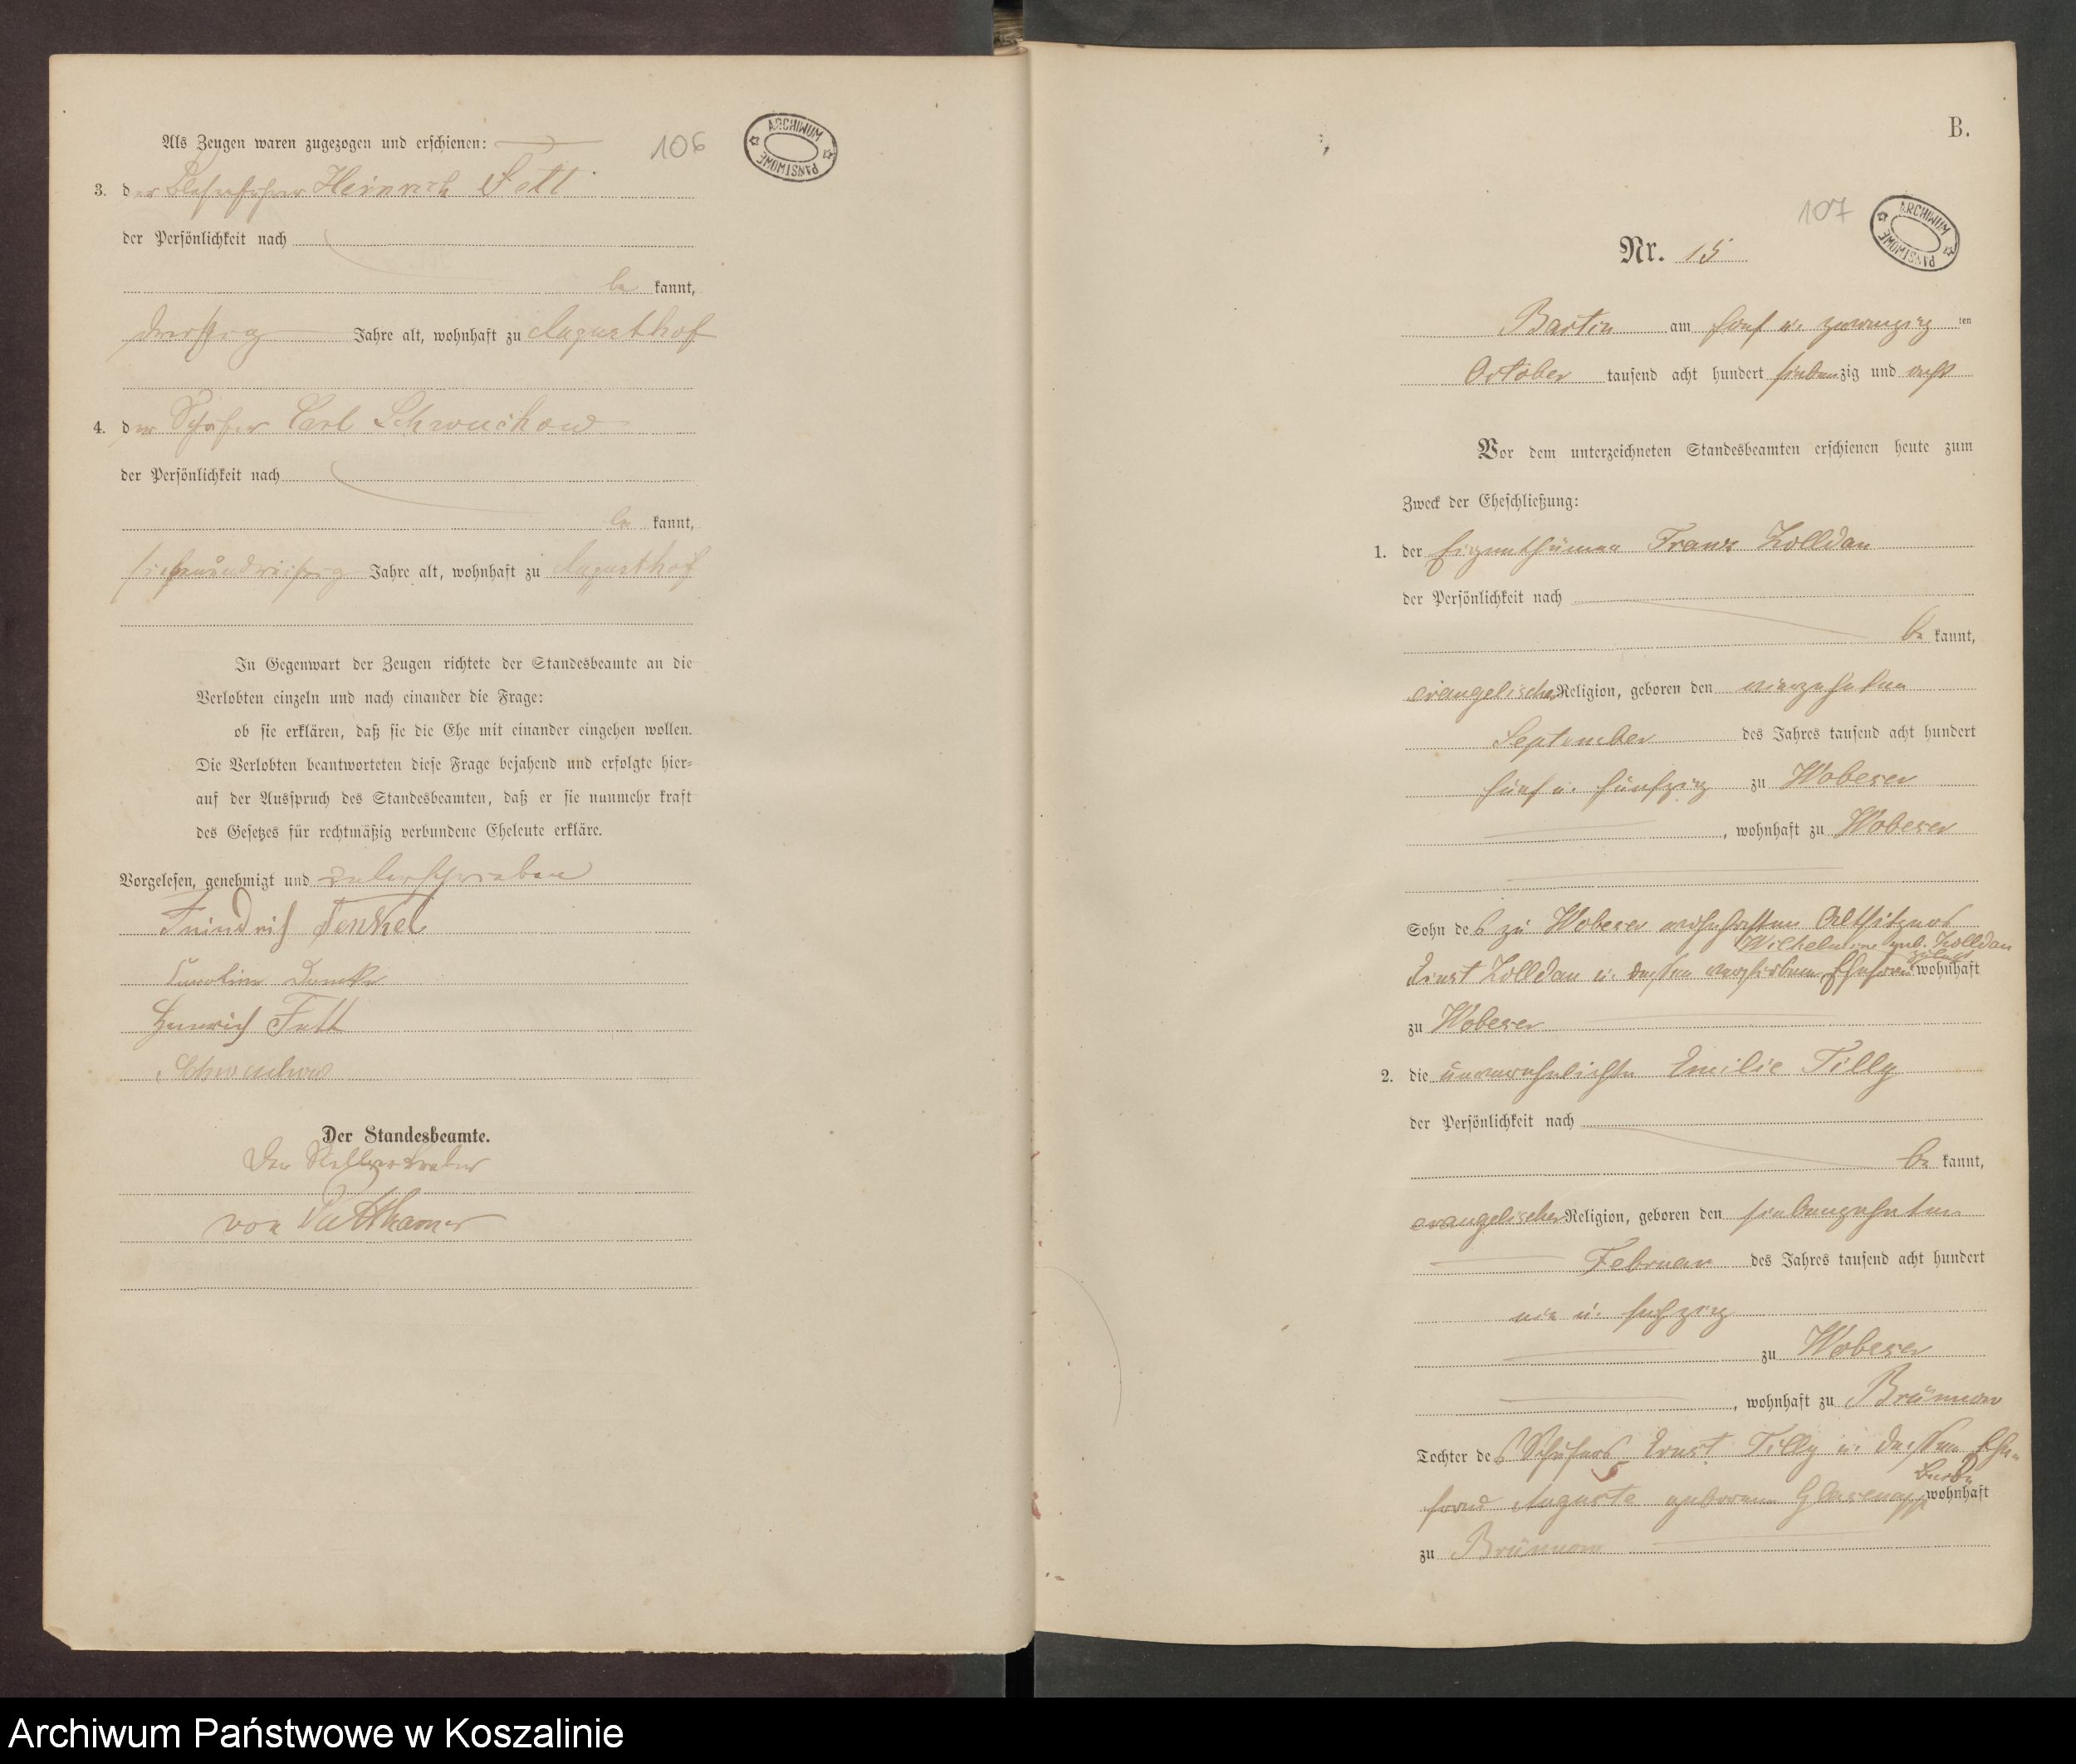 Als Zeugen waren zugezogen und erschienen:
106
ARCHIWUM PAŃSTWOWE
3. der Heinrich Fett
der Persönlichkeit nach
be kannt,
dreißig Jahre alt, wohnhaft zu Augusthof
4. der Schäfer Carl Schwuchow
der Persönlichkeit nach
be kannt,
Jahre alt, wohnhaft zu Augusthof
In Gegenwart der Zeugen richtete der Standesbeamte an die
Verlobten einzeln und nach einander die Frage:
ob sie erklären, daß sie die Ehe mit einander eingehen wollen.
Die Verlobten beantworteten diese Frage bejahend und erfolgte hier-
auf der Ausspruch des Standesbeamten, daß er sie nunmehr kraft
des Gesetzes für rechtmäßig verbundene Eheleute erkläre.
Vorgelesen, genehmigt und unterschrieben
Friedrich
Heinrich Fett
Schwuchow
Der Standesbeamte.
Der Stellvertreter
von Puttkamer
B.
107
ARCHIWUM PAŃSTWOWE
Nr. 15
Bartin am fünf u. zwanzig ten
October tausend acht hundert siebenzig und acht
Vor dem unterzeichneten Standesbeamten erschienen heute zum
Zweck der Eheschließung:
1. der Eigenthümer Franz Zolldan
der Persönlichkeit nach
be kannt,
evangelischer Religion, geboren den vierzehnten
September des Jahres tausend acht hundert
fünf u. fünfzig zu Wobeser
, wohnhaft zu Wobeser
Sohn des zu Wobeser wohnhaften Altsitzers
Wilhelmine geb. Zolldan
Ernst Zolldan u. dessen verstorbenen Ehefrau zuletzt wohnhaft
zu Wobeser
2. die unverehelichte Emilie Tilly
der Persönlichkeit nach
be kannt,
evangelischer Religion, geboren den siebenzehnten
Februar des Jahres tausend acht hundert
u. sechzig
zu Wobeser
, wohnhaft zu Brünnow
Tochter des Schäfers Ernst Tilly u. dessen Ehe-
frau Auguste geborene Glasenapp beide wohnhaft
zu Brünnow
Archiwum Państwowe w Koszalinie